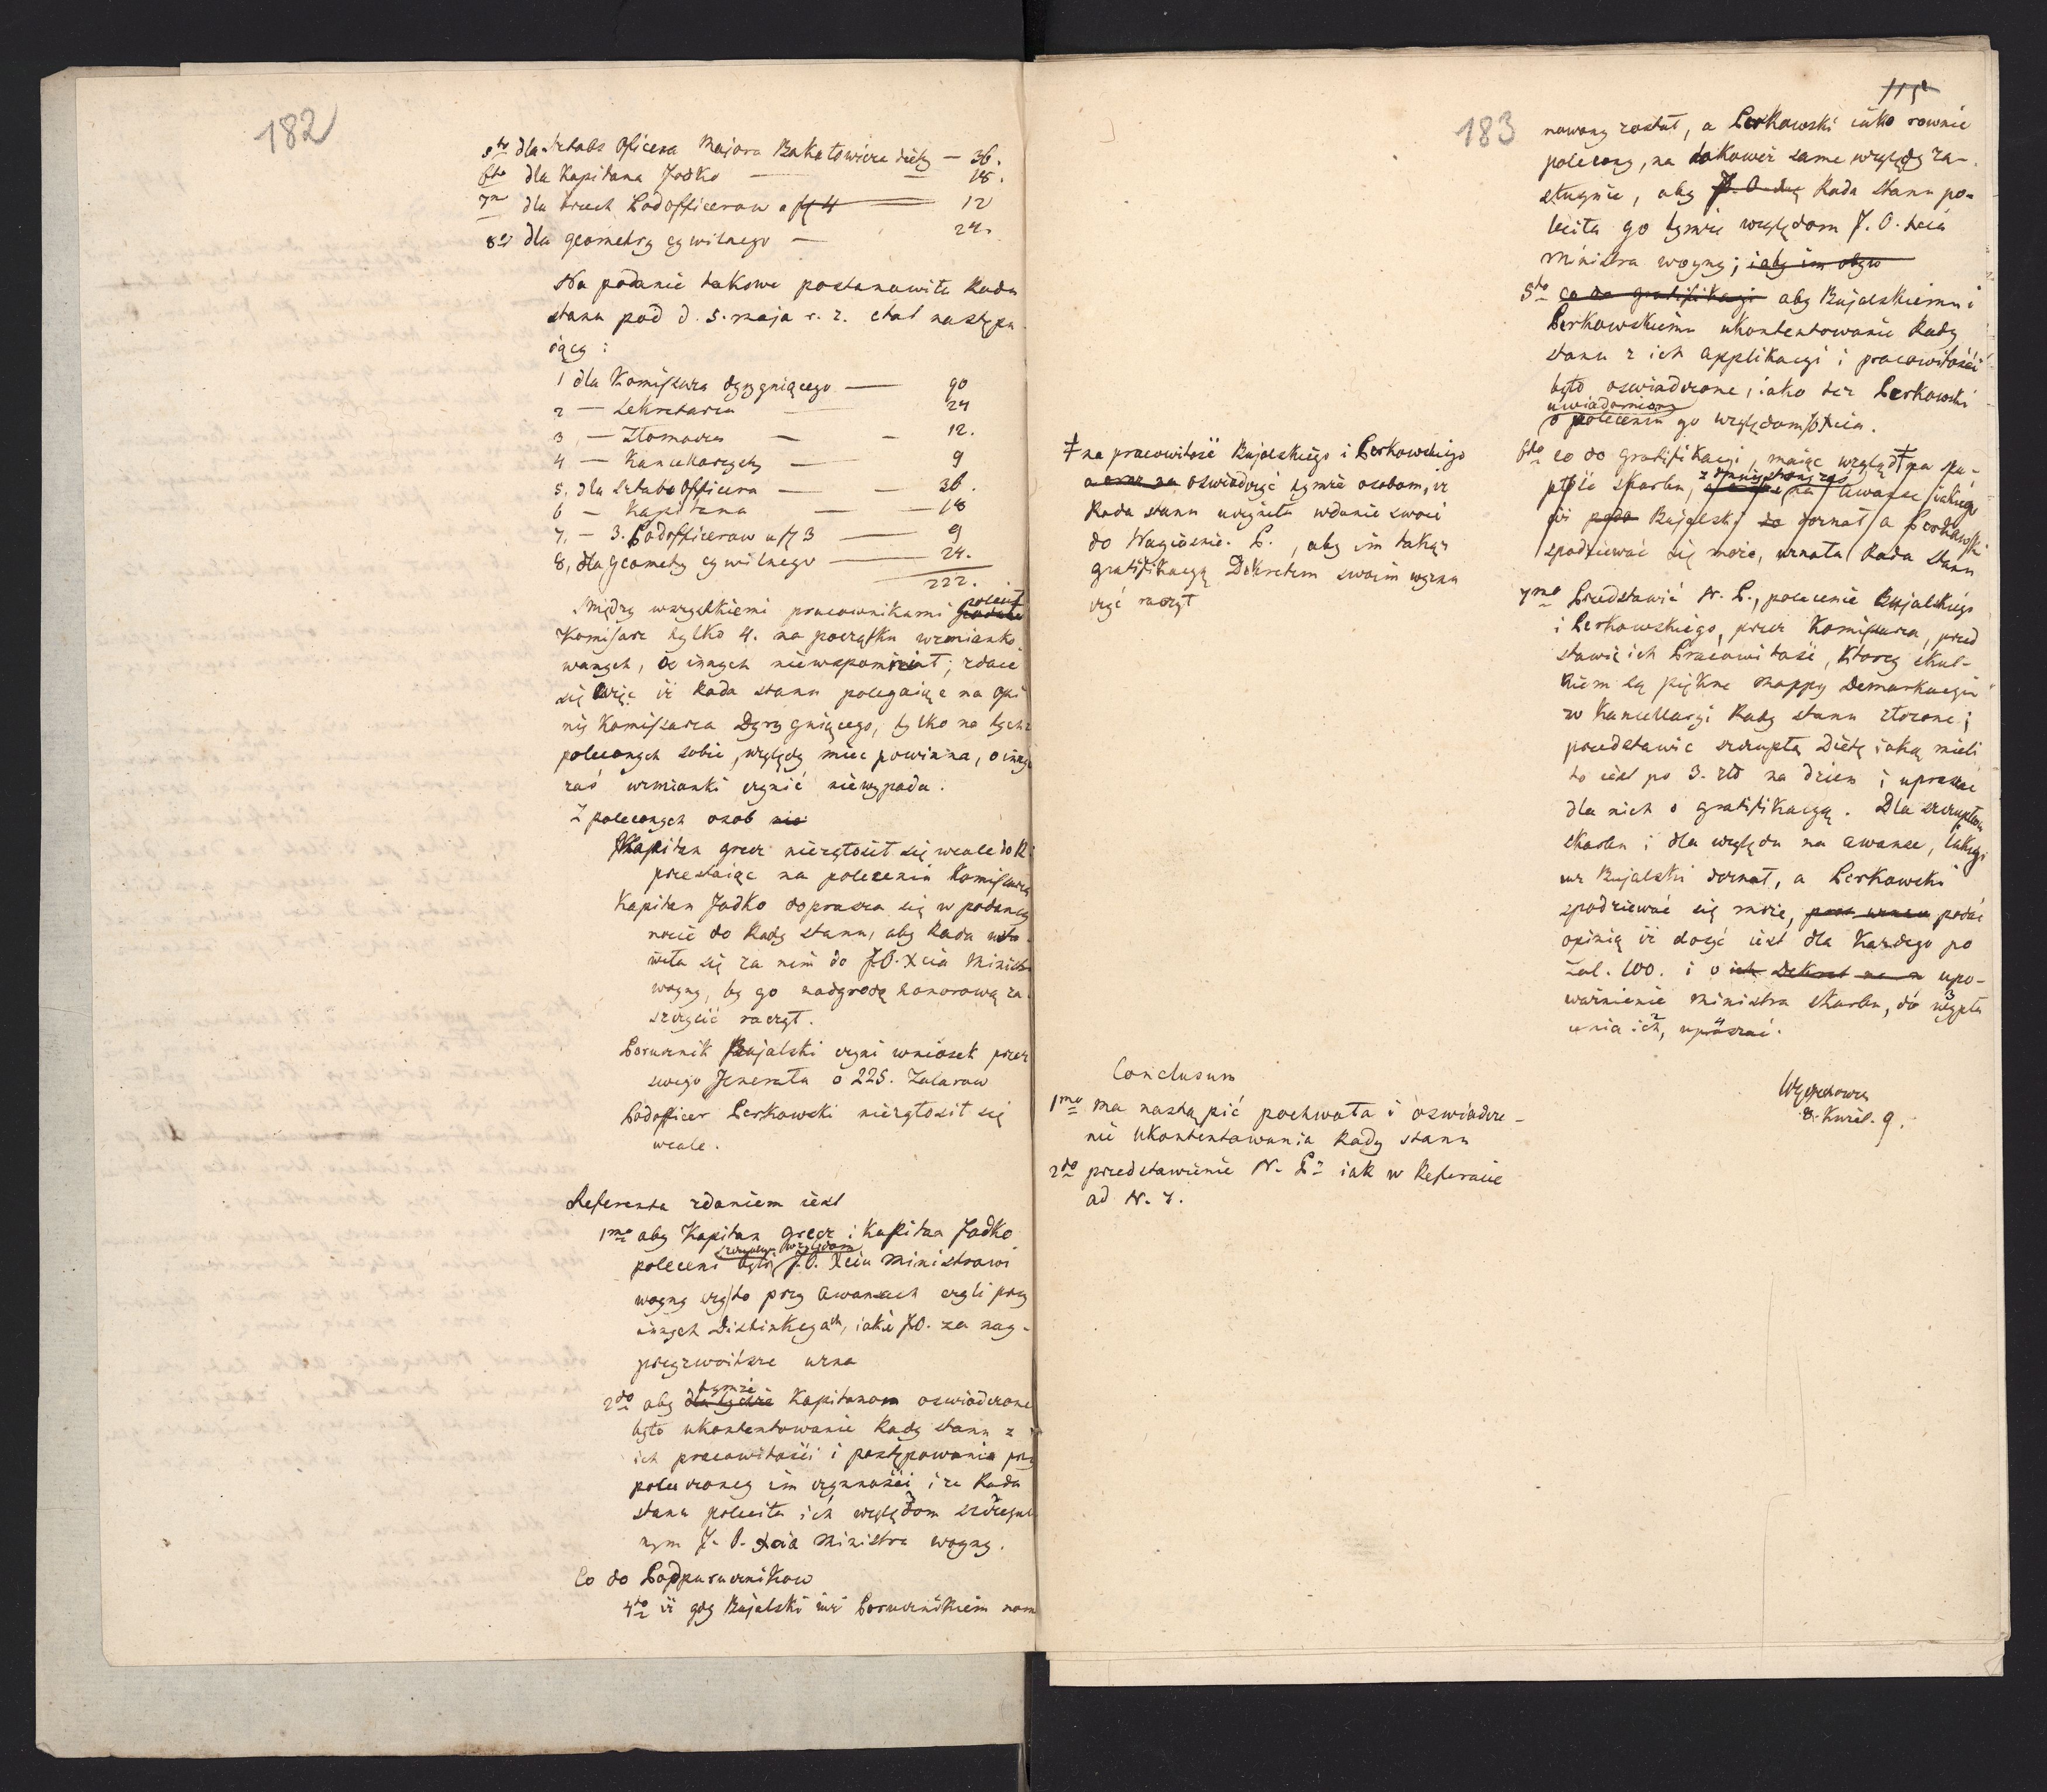 182
5to dla Sztabs Oficera Majora Bakałowicza diety — 36.
6to dla Kapitana Jodko — 18.
7mo dla trzech Podofficerow a ff 4 — 12
8vo dla geometry cywilnego — 24.
Na podanie takowe postanowiła Rada
stanu pod d. 5. maja r. z. etat nastęPu
iący :
1 dla Komissarza dyrygniącego — 90
2 — Sekretarza — 24
3, — Tłomacza — 12.
4 — Kancellaryty — 9
5. dla Sztabs Officera — 36.
6 — Kapitana — 18
7. — 3. Podofficerow a ff 3 — 9
8, dla geometry cywilnego — 24.
222.
Między wszystkiemi pracownikami polecił
Komisarz tylko 4. na początku wzmianko
wanych, o innych niewspomniał; zdaie
się więc iż Rada stanu polegaiąc na opi
nij Komissarza Dyrygniącego, tylko na tych
poleconych sobie, względy miec powinna, o innych
zaś wzmianki czynić niewypada.
Z poleconych osob nie
Kapitan grecz niezgłosił się wcale do R
przestaiąc na poleceniu Komissarza
Kapitan Jodko doprasza się w podaney
nocie do Rady stanu, aby Rada wsta
wiła się za nim do JO. Xcia Ministra
woyny, by go nadgrodą honorową za
szczycić raczył.
Porucznik Bujalski czyni wniosek przez
swego Jenerała o 225. Talarow
Podofficer Perkowski niezgłosił się
wcale.
Referenta zdaniem iest
1mo aby Kapitan grecz i Kapitan Jodko
szczegulnym względom
poleceni byli J.O. Xciu Ministrowi
woyny czyto przy awansach czyli przy
innych Distinkcyach, iakie JO. za nay-
przyzwoitsze uzna
tymże
2do aby dla tychże Kapitanom oswiadczone
było ukontentowanie Rady stanu z
ich pracowitości i postępowania przy
poleczoney im czynności i że Rada
stanu poleciła ich względom szczegul
nym J. O. Xcia Ministra woyny.
Co do Podporucznikow
4to iż gdy Bujalski iuż Porucznikiem nom
115
183
nowany został, a Perkowski iako rownie
polecony, na takoweż same względy za-
sługuie, aby J. O. Rada Stanu po-
leciła go tymże względom J. O. Xcia
Ministra woyny; i aby im obyw
5to co do gratifikacyi aby Bujalskiemu i
Perkowskiemu ukontentowanie Rady
stanu z ich applikacyi i pracowitości
było oswiadczone, iako też Perkowski
uwiadomiony
o poleceniu go względom JO Xcia.
6to co do gratifikacyi, maiąc wzgląd ‡ na szczu-
płość skarbu, na awanse iakiego
iuż Bujalski doznał a Perkowski
spodziewać się może, uznała Rada Stanu
7mo Przedstawić N. P., polecenie Bujalskiego
i Perkowskiego, przez Komissarza, przed
stawić ich Pracowitość, ktorey skut-
kiem są piękne mappy Demarkacyi
w Kancellaryi Rady stanu złozone;
przedstawic szczupłą Dietę iaką mieli
to iest po 3. złł na dzien i upraszać
dla nich o gratifikacyą. Dla szczupłosci
skarbu i dla względu na awanse, iakiego
iuż Bujalski doznał, a Perkowski
spodziewać się może, podać
opinią iż dosyć iest dla Każdego po
tal. 100. i o ich Dekret upo-
ważnienie Ministra skarbu, do wypła
cenia ich, upraszać.
‡ na pracowitość Bujalskiego i Perkowskiego
oraz na oswiadczyć tymże osobom, iż
Rada stanu uczyniła wdanie swoie
do Nayiasnie. P., aby im takąż
gratifikacyą Dekretem swoim wyzna
czyć raczył
Conclusum
1mo ma nastąpić pochwała i oswiadcze-
nie ukontentowania Rady stanu
2do przedstawienie N. Pu iak w Referacie
ad N. 7.